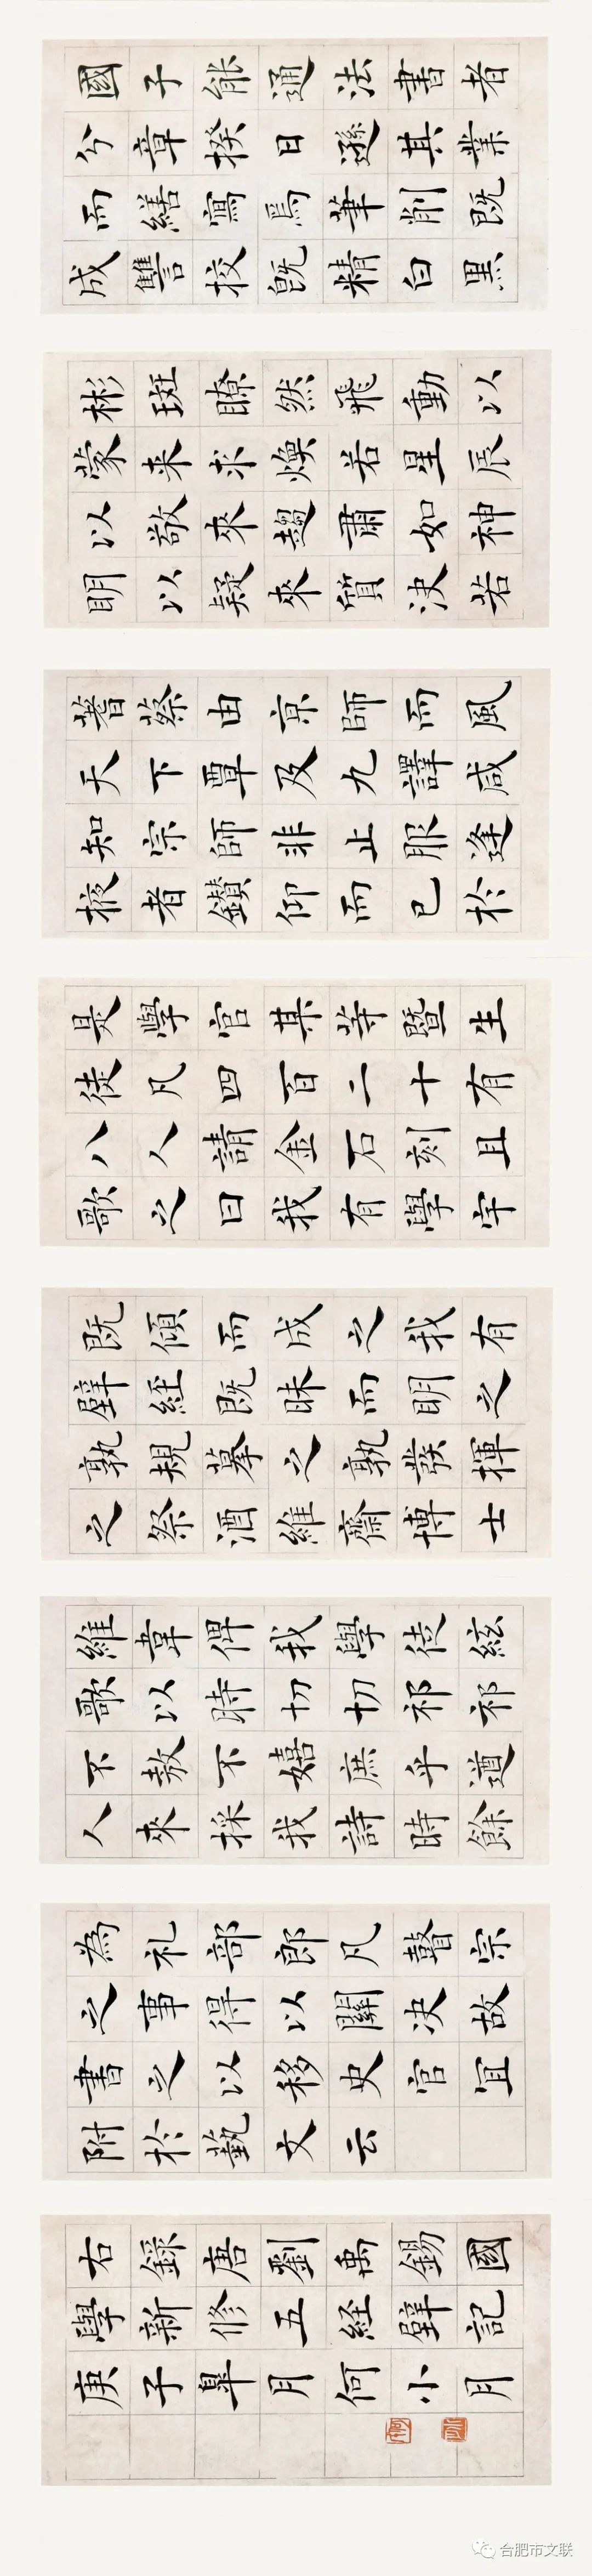 國子能通法書者
分章揆日遜其業
而繕寫焉筆削既
成讐校既精白黑
彬斑瞭然飛動以
蒙来求煥若星辰
以敬來趨肅如神
明以疑來質決若
蓍蔡由京師而風
天下覃及九譯咸
知宗師非止服逢
掖者鑽仰而已於
是學官某等暨生
徒凡四百二十有
八人請金石刻且
歌之曰我有學宇
既傾而成之我有
壁経既昧而明之
孰規摹之孰發揮
之祭酒維齋博士
維韋俾我學徒絃
歌以時切切祁祁
不敖不嬉庶乎遒
人來採我詩時餘
為礼部郎凡瞽宗
之事得以關决故
書之以移史官宜
附於藝文云
右錄唐劉禹錫國
學新修五経壁記
庚子皐月何小月
合肥市文联